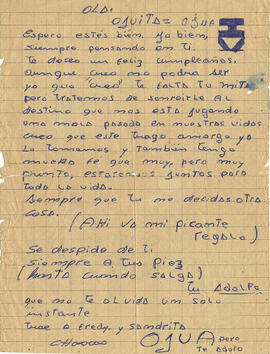 OLA:
OJUITA = OJUA
Espero estés bien. Yo bien,
siempre pensando en ti.
Te deceo un feliz cumpleaños.
aunque creo no podrá ser
ya que "creo" te falta tu mita
pero tratemos de sonreirle al
destino que nos esta jugando
una mala pasada en nuestras vidas
creo que este trago amargo ya
lo tomamos y también tengo
mucha fé que muy, pero muy
pronto, estaremos juntos para
toda la vida.
Siempre que tu no decidas otra
cosa.
(Ahi va mi picante
regalo)
Se despide de ti
siempre a tus piez
(hasta cuando salga)
tu Adolfo
que no te olvida un solo
instante
trae a Fredy. y Sandrita
Chaoooo OJUA pero
te adoro